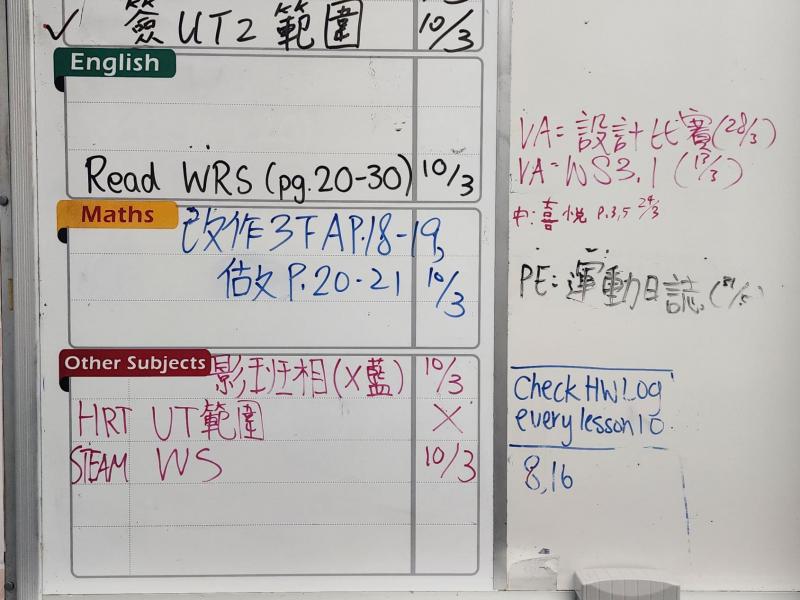 ✓ 簽 UT2 範圍 10/3
English
Read WRS (pg.20-30) 10/3
Maths
改作3下A P.18-19,
做 P.20-21 10/3
Other Subjects
影班相(X藍) 10/3
HRT UT範圍 X
STEAM WS 10/3
VA=設計比賽(28/3)
VA=WS3.1 (13/3)
中:喜悅 P.3,5 24/3
PE:運動日誌
Check HW Log
every lesson 10
8,16